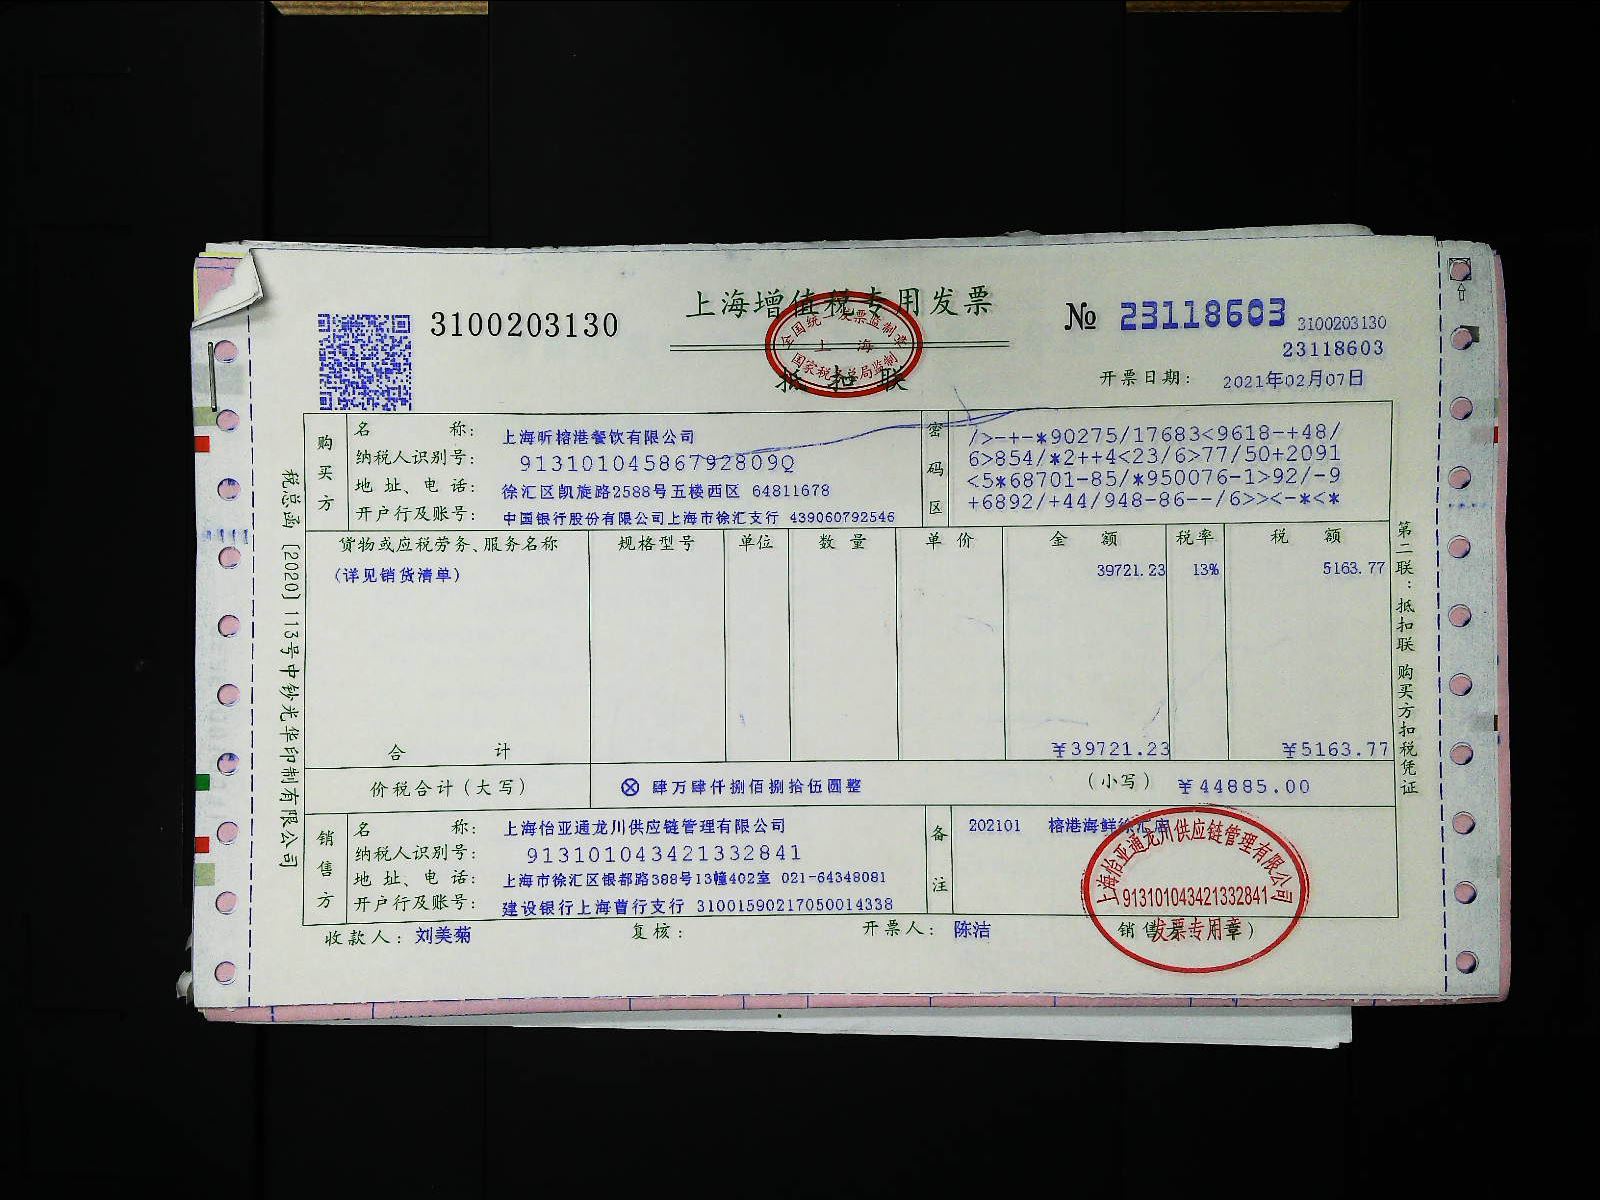 上海增值税专用发票
3100203130
№ 23118603
3100203130
23118603
全国统一发票监制章
上海
国家税务总局监制
抵扣联
开票日期: 2021年02月07日
购买方
名称: 上海昕榕港餐饮有限公司
纳税人识别号: 91310104586792809Q
地址、电话: 徐汇区凯旋路2588号五楼西区 64811678
开户行及账号: 中国银行股份有限公司上海市徐汇支行 439060792546
密码区
/>-+-*90275/17683<9618-+48/
6>854/*2++4<23/6>77/50+2091
<5*68701-85/*950076-1>92/-9
+6892/+44/948-86--/6>><-*<*
货物或应税劳务、服务名称 规格型号 单位 数量 单价 金额 税率 税额
(详见销货清单) 39721.23 13% 5163.77
合计 ¥39721.23 ¥5163.77
价税合计(大写) ⊗ 肆万肆仟捌佰捌拾伍圆整 (小写) ¥44885.00
销售方
名称: 上海怡亚通龙川供应链管理有限公司
纳税人识别号: 913101043421332841
地址、电话: 上海市徐汇区银都路388号13幢402室 021-64348081
开户行及账号: 建设银行上海曹行支行 31001590217050014338
备注
202101 榕港海鲜徐汇店
上海怡亚通龙川供应链管理有限公司
913101043421332841
发票专用章
收款人: 刘美菊 复核: 开票人: 陈洁 销售方:(章)
税总函〔2020〕113号中钞光华印制有限公司
第二联:抵扣联 购买方扣税凭证